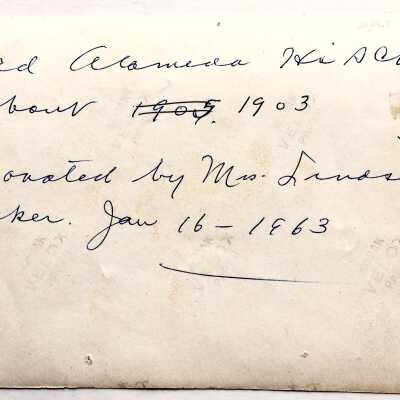 ed Alameda Hi Sc
bout 1905. 1903
onated by Mrs. Linds
ker. Jan 16 - 1963